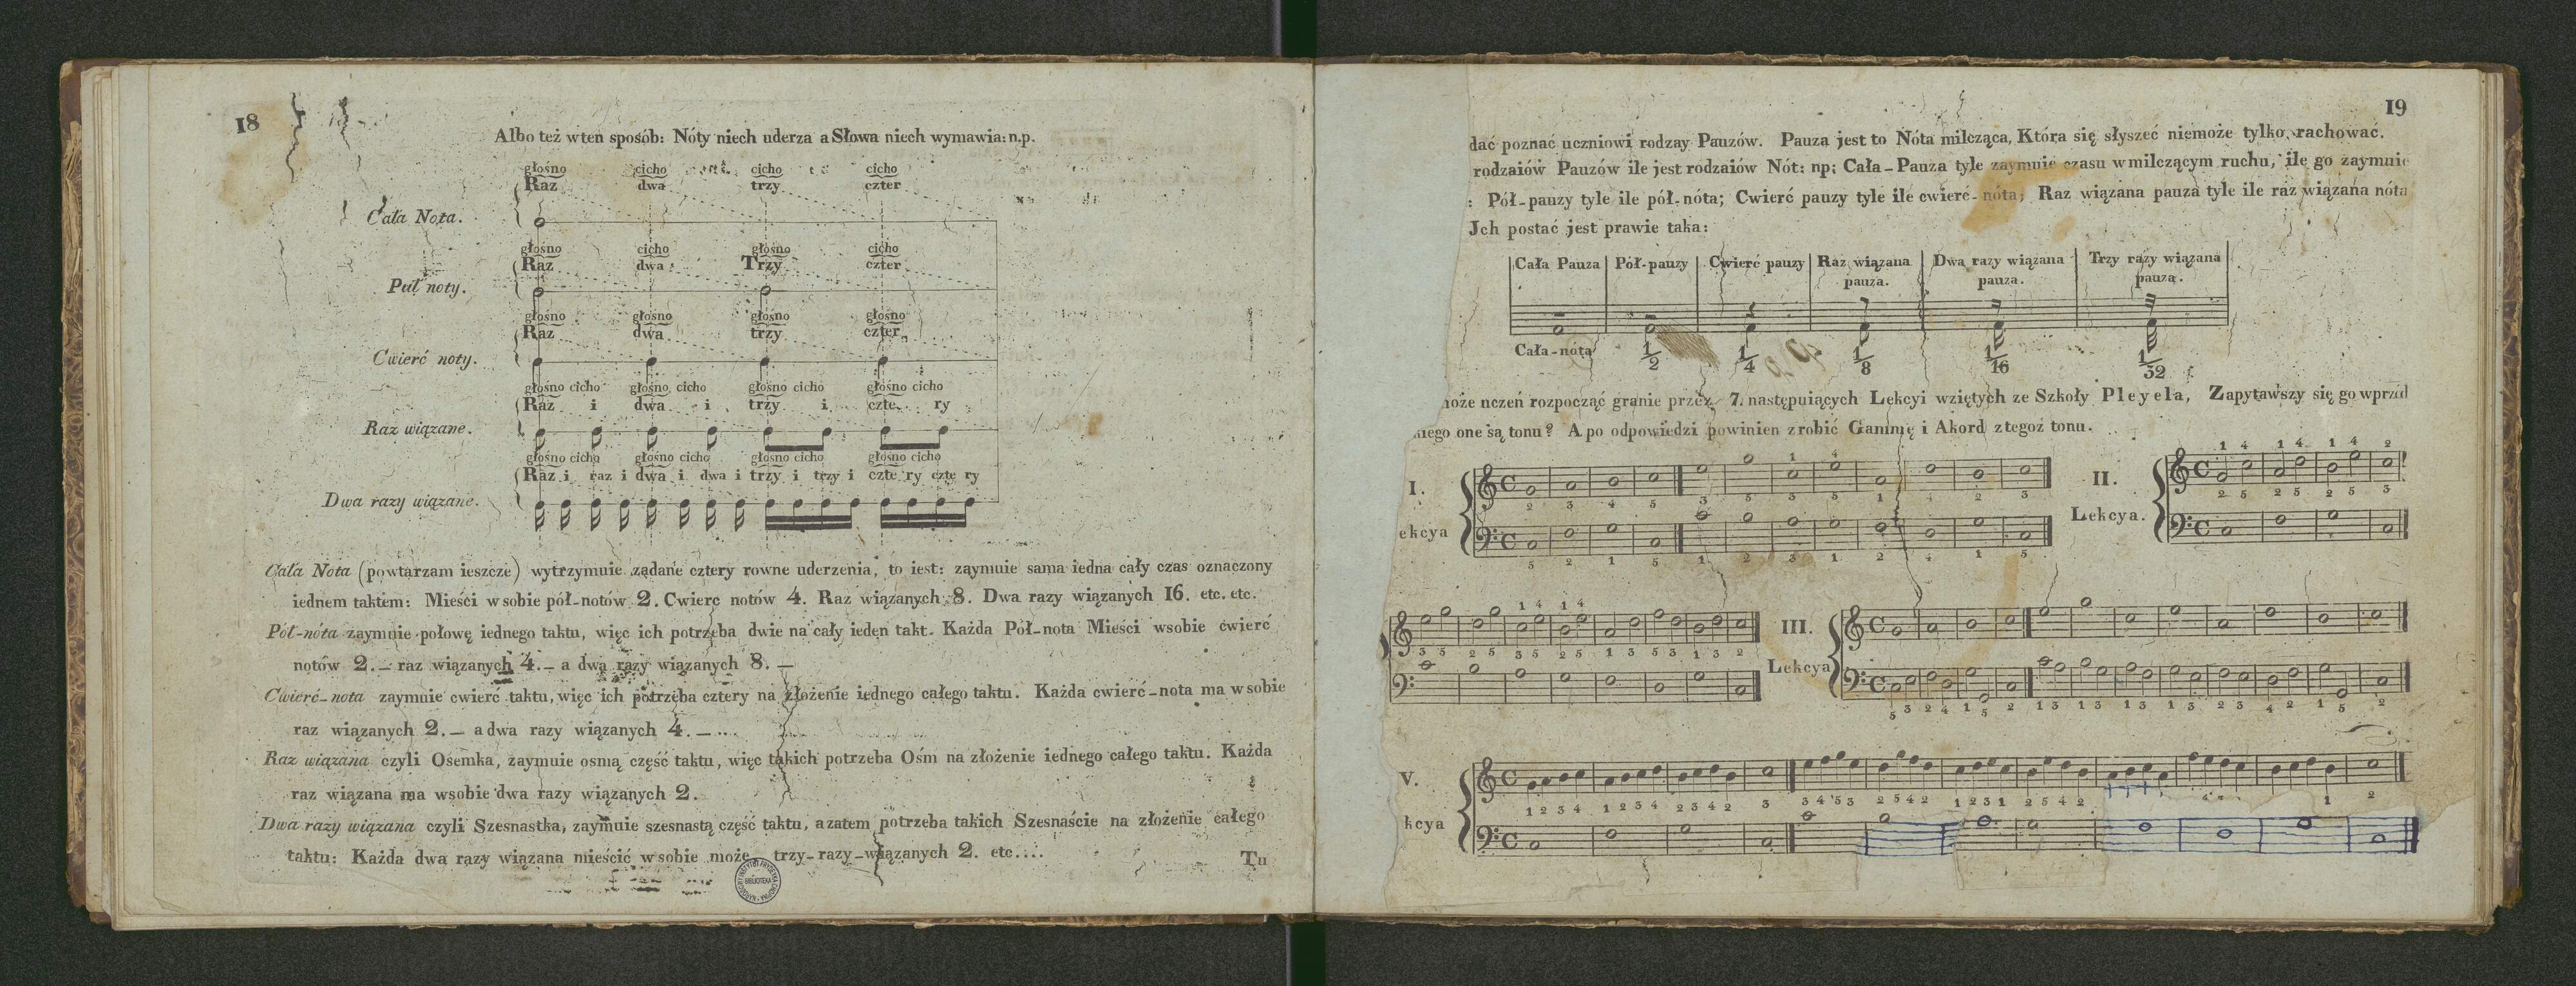 18
Albo też wten sposób: Nóty niech uderza a Słowa niech wymawia: n.p.
głośno cicho cicho cicho
Raz dwa trzy czter
Cała Nota.
głośno cicho głośno cicho
Raz dwa Trzy czter
Puł noty.
głośno głośno głośno głośno
Raz dwa trzy czter
Cwierć noty.
głośno cicho głośno cicho głośno cicho głośno cicho
Raz i dwa i trzy i czte ry
Raz wiązane.
głośno cicho głośno cicho głośno cicho głośno cicho
Raz i raz i dwa i dwa i trzy i trzy i czte ry czte ry
Dwa razy wiązane.
Cała Nota (powtarzam ieszcze) wytrzymuie ządane cztery rowne uderzenia, to iest: zaymuie sama iedna cały czas oznaczony
iednem taktem: Mieści wsobie pół-notów 2. Cwierc notów 4. Raz wiązanych 8. Dwa razy wiązanych 16. etc. etc.
Pół-nóta zaymuie połowę iednego taktu, więc ich potrzeba dwie na cały ieden takt. Każda Pół-nota Mieści wsobie cwierć
notów 2.— raz wiązanych 4.— a dwa razy wiązanych 8.—
Cwierć-nota zaymuie cwierć taktu, więc ich potrzeba cztery na złożenie iednego całego taktu. Każda cwierć-nota ma wsobie
raz wiązanych 2.— a dwa razy wiązanych 4.—
Raz wiązana czyli Osemka, zaymuie osmą część taktu, więc takich potrzeba Ośm na złożenie iednego całego taktu. Każda
raz wiązana ma wsobie dwa razy wiązanych 2.
Dwa razy wiązana czyli Szesnastka, zaymuie szesnastą część taktu, a zatem potrzeba takich Szesnaście na złożenie całego
taktu: Każda dwa razy wiązana mieścić wsobie może trzy-razy-wiązanych 2. etc....
Tu
BIBLIOTEKA
19
dać poznać uczniowi rodzay Pauzów. Pauza jest to Nóta milcząca, Która się słyszeć niemoże tylko rachować.
rodzaiów Pauzów ile jest rodzaiów Nót: np: Cała-Pauza tyle zaymuie czasu wmilczącym ruchu, ile go zaymuie
: Pół-pauzy tyle ile pół-nóta; Cwierć pauzy tyle ile cwierć-nóta; Raz wiązana pauza tyle ile raz wiązana nóta
Jch postać jest prawie taka:
Cała Pauza Pół-pauzy Cwierć pauzy Raz wiązana pauza. Dwa razy wiązana pauza. Trzy razy wiązana pauza.
Cała-nóta 1/2 1/4 1/8 1/16 1/32
może uczeń rozpocząć granie przez 7. następuiących Lekcyi wziętych ze Szkoły Pleyela, Zapytawszy się go wprzód
iego one są tonu? A po odpowiedzi powinien zrobić Gammę i Akord ztegoż tonu.
I.
ekcya
II.
Lekcya.
III.
Lekcya
V.
kcya